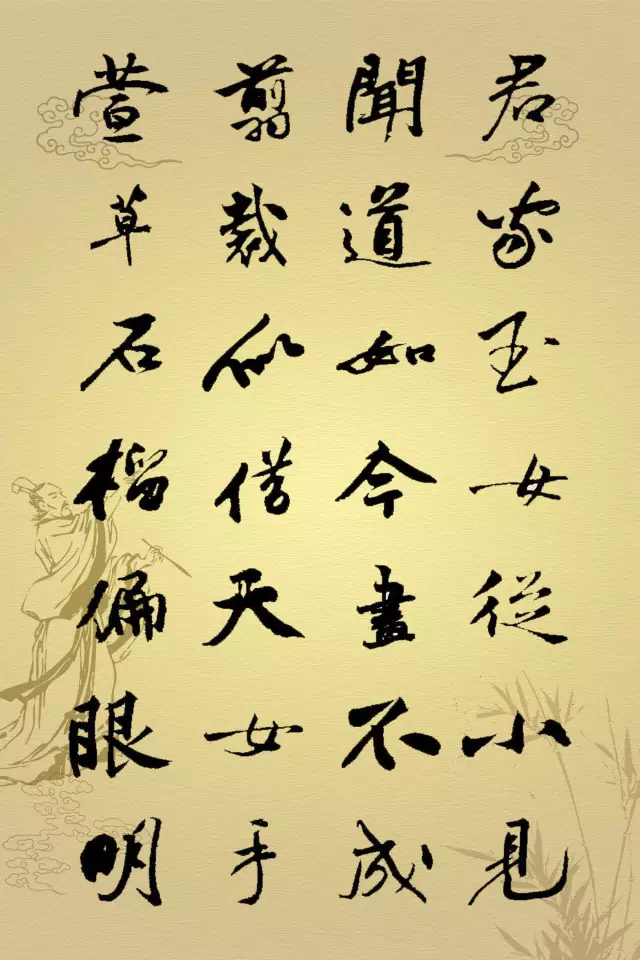 君家玉女從小見
聞道如今畫不成
剪裁似借天女手
萱草石榴偏眼明